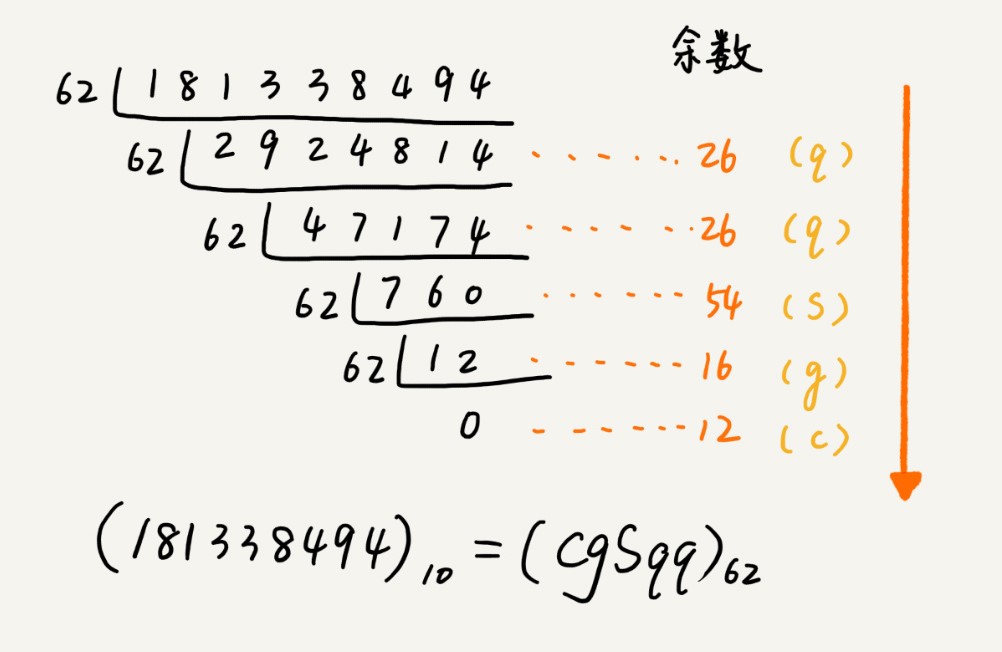 余数
62 181338494
62 2924814 ······· 26 (q)
62 47174 ······· 26 (q)
62 760 ······· 54 (S)
62 12 ······· 16 (g)
0 ······· 12 (c)
(181338494)₁₀ = (cgSqq)₆₂